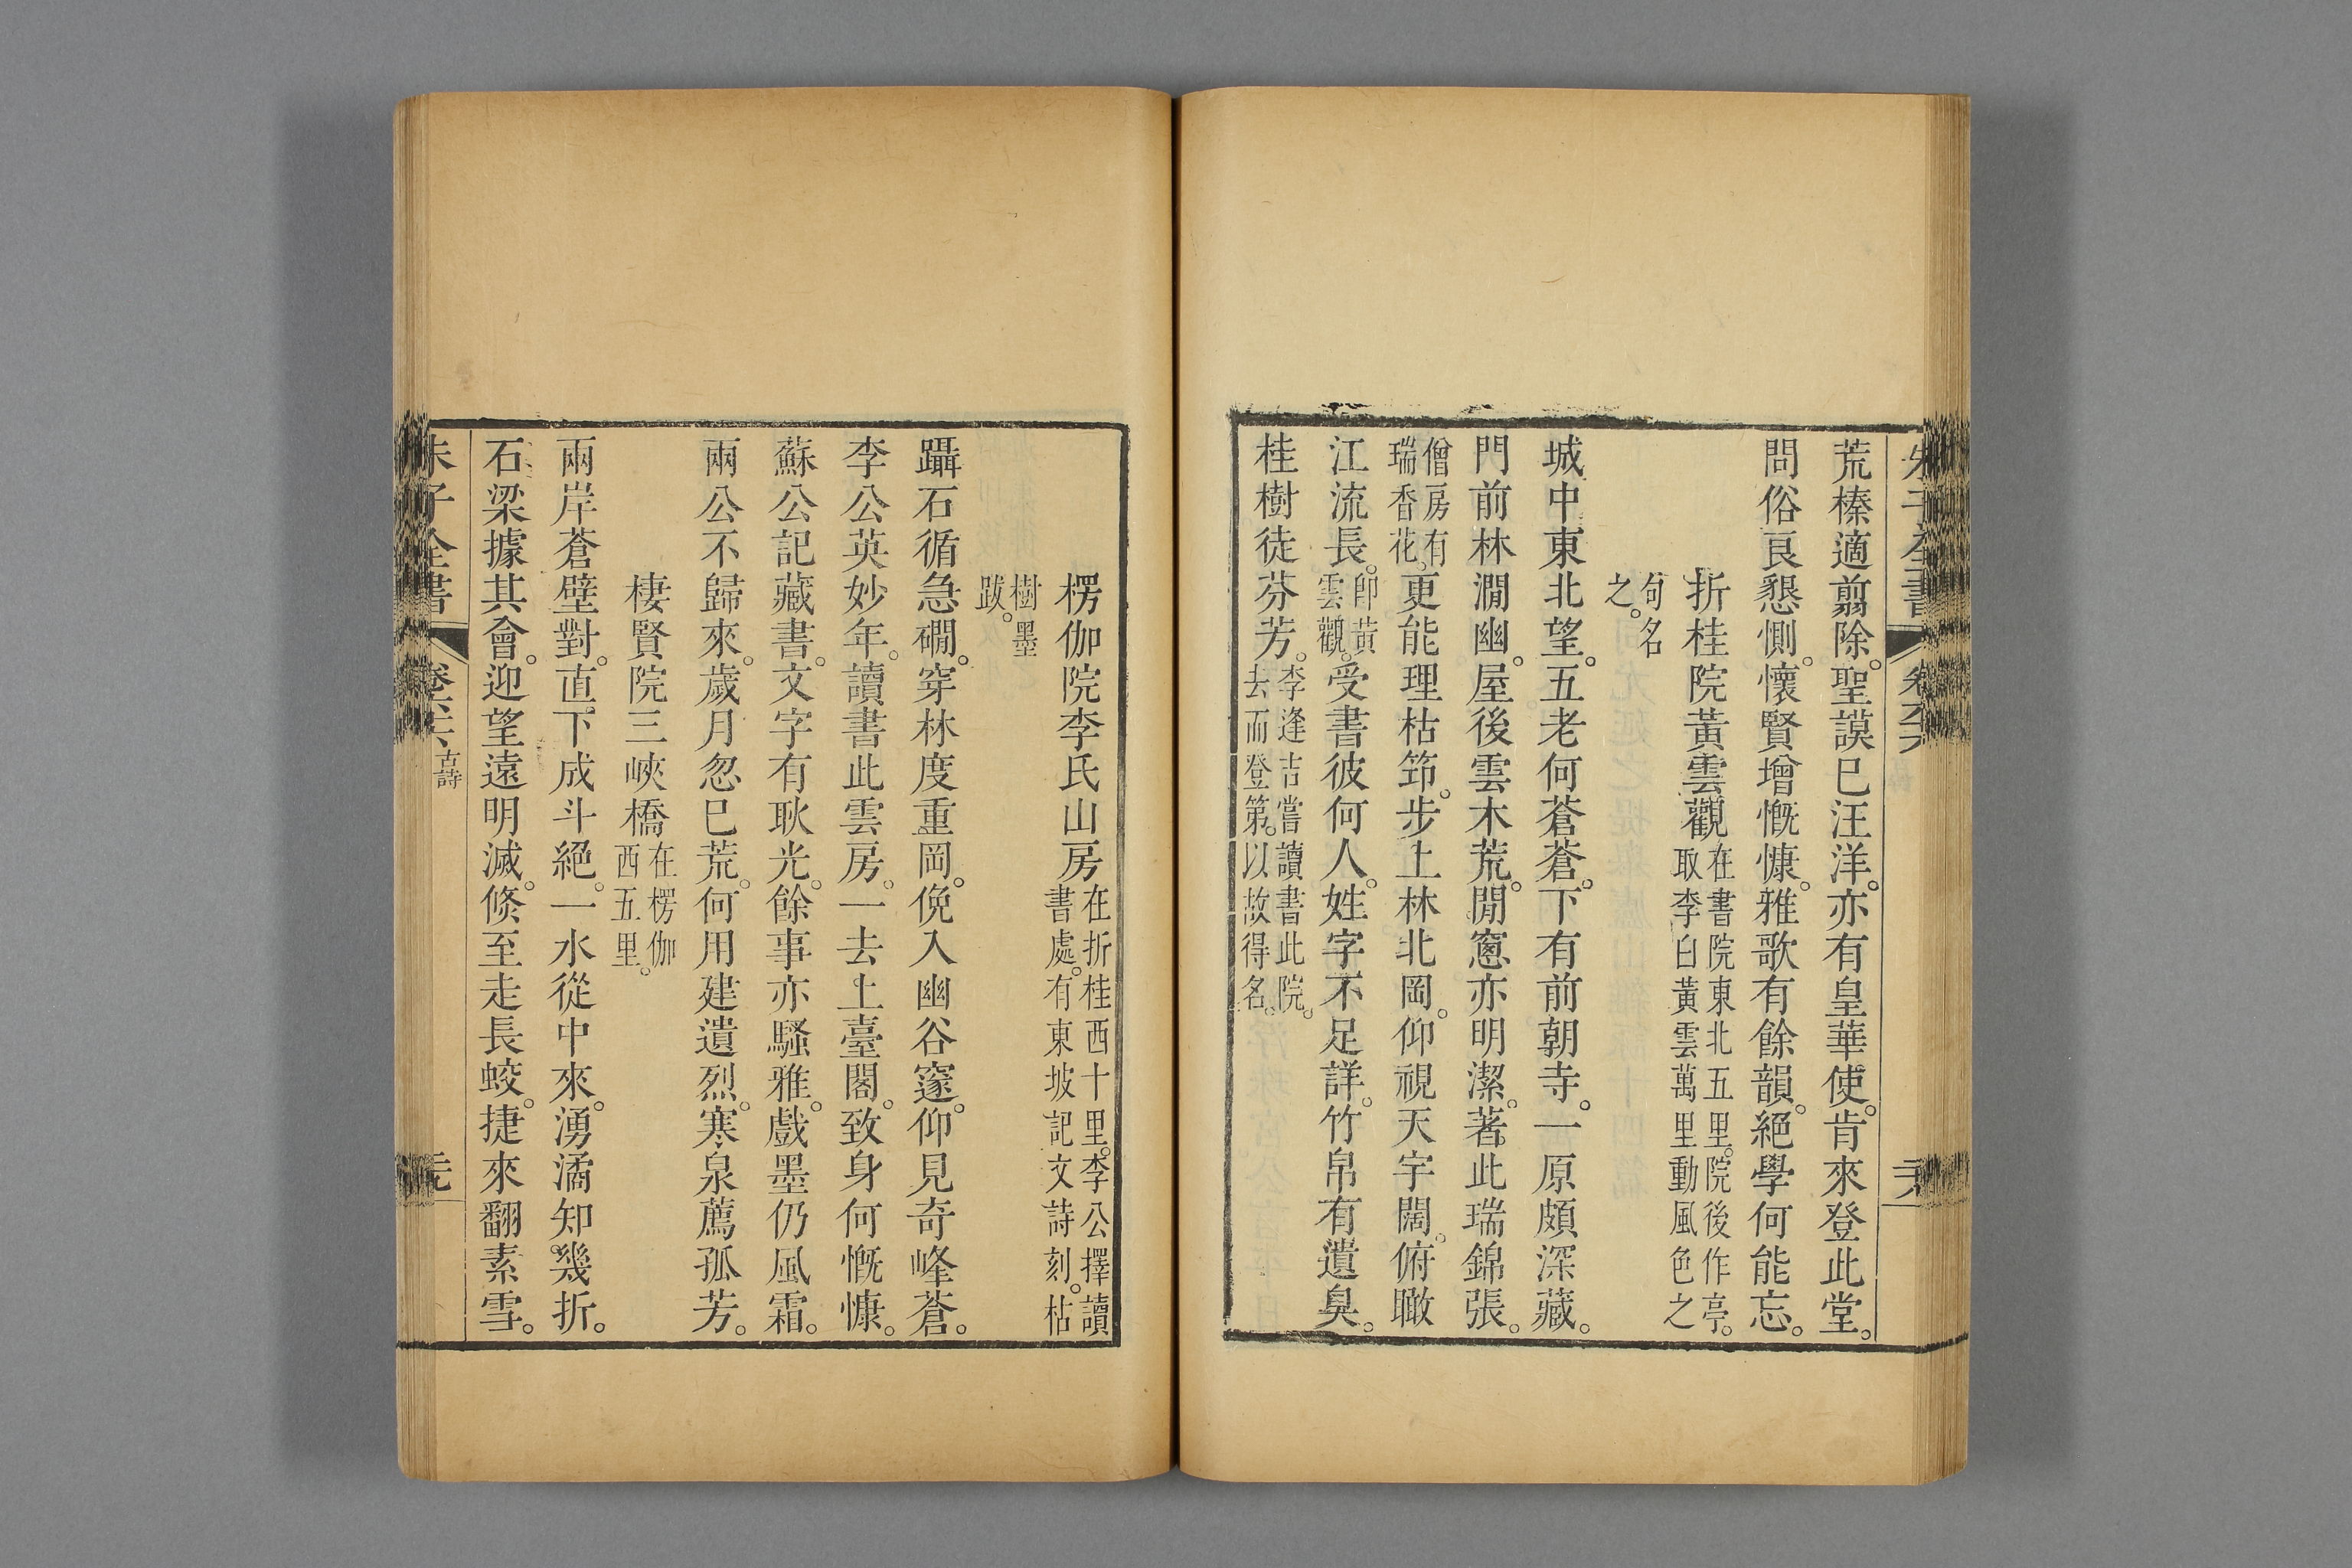 荒榛適翦除。聖謨巳汪洋。亦有皇華使。肯來登此堂。
問俗良懇惻。懷賢增慨慷。雅歌有餘韻。絕學何能忘。
折桂院黃雲觀在書院東北五里。院後作亭。取李白黃雲萬里動風色之
句名之。
城中東北望。五老何蒼蒼。下有前朝寺。一原頗深藏。
門前林澗幽。屋後雲木荒。閒窻亦明潔。著此瑞錦張。
僧房有瑞香花。更能理枯筇。步上林北岡。仰視天宇闊。俯瞰
江流長。卽黃雲觀。受書彼何人。姓字不足詳。竹帛有遺臭。
桂樹徒芬芳。李逢吉嘗讀書此院。去而登第。以故得名。
楞伽院李氏山房在折桂西十里。李公擇讀書處。有東坡記文詩刻。枯
樹墨跋。
躡石循急磵。穿林度重岡。俛入幽谷邃。仰見奇峰蒼。
李公英妙年。讀書此雲房。一去上臺閣。致身何慨慷。
蘇公記藏書。文字有耿光。餘事亦騷雅。戲墨仍風霜。
兩公不歸來。歲月忽巳荒。何用建遺烈。寒泉薦孤芳。
棲賢院三峽橋在楞伽西五里。
兩岸蒼壁對。直下成斗絕。一水從中來。湧潏知幾折。
石梁據其會。迎望遠明滅。倐至走長蛟。捷來翻素雪。
朱子全書 卷六六 古詩